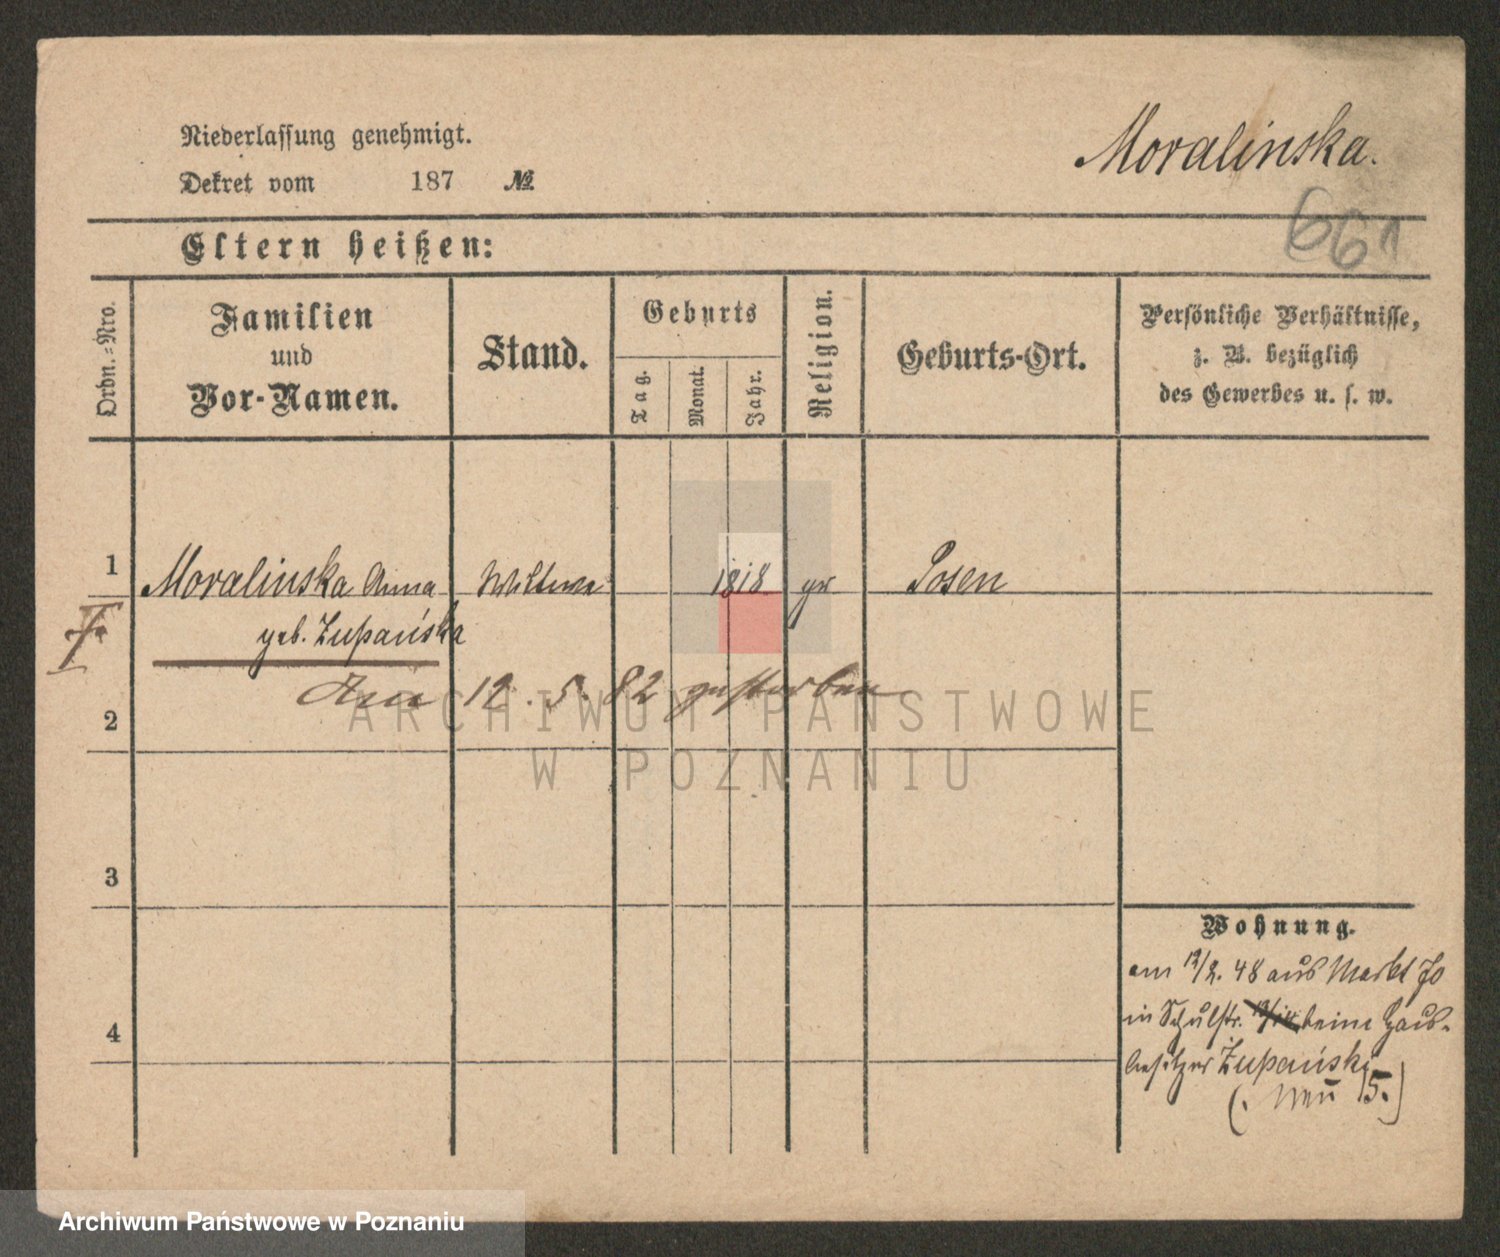 Niederlassung genehmigt.
Dekret vom 187 №
Moralinska.
661
Eltern heißen:
Ordn.=Nro.
Familien
und
Vor-Namen.
Stand.
Geburts
Tag.
Monat.
Jahr.
Religion.
Geburts-Ort.
Persönliche Verhältnisse,
z. B. bezüglich
des Gewerbes u. s. w.
1 Moralinska Anna Wittwe 1818 Posen
geb. Żupańska
Am 12. 5. 82 gestorben
2
3
4
Wohnung.
am 12/2. 48 aus Markt
in Schulstr. beim Haus-
besitzer Żupański
(. Neu 15.)
ARCHIWUM PAŃSTWOWE
W POZNANIU
Archiwum Państwowe w Poznaniu